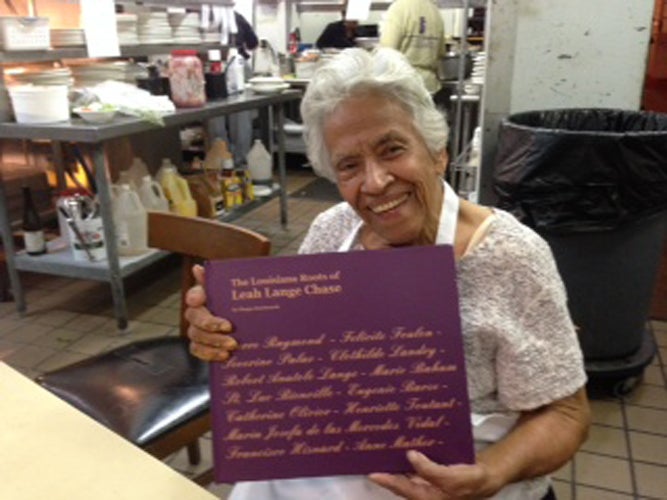 The Louisiana Roots of
Leah Lange Chase
Raymond - Felicite Foulon -
Severine Palao - Clothilde Landry -
Robert Anatole Lange - Marie Raham
St Luc Bienville - Eugenie Barco -
Catherine Olivier - Henriette Toutant -
Maria Josefa de las Mercedes Vidal -
Francisco Hisnard - Anne Mather -